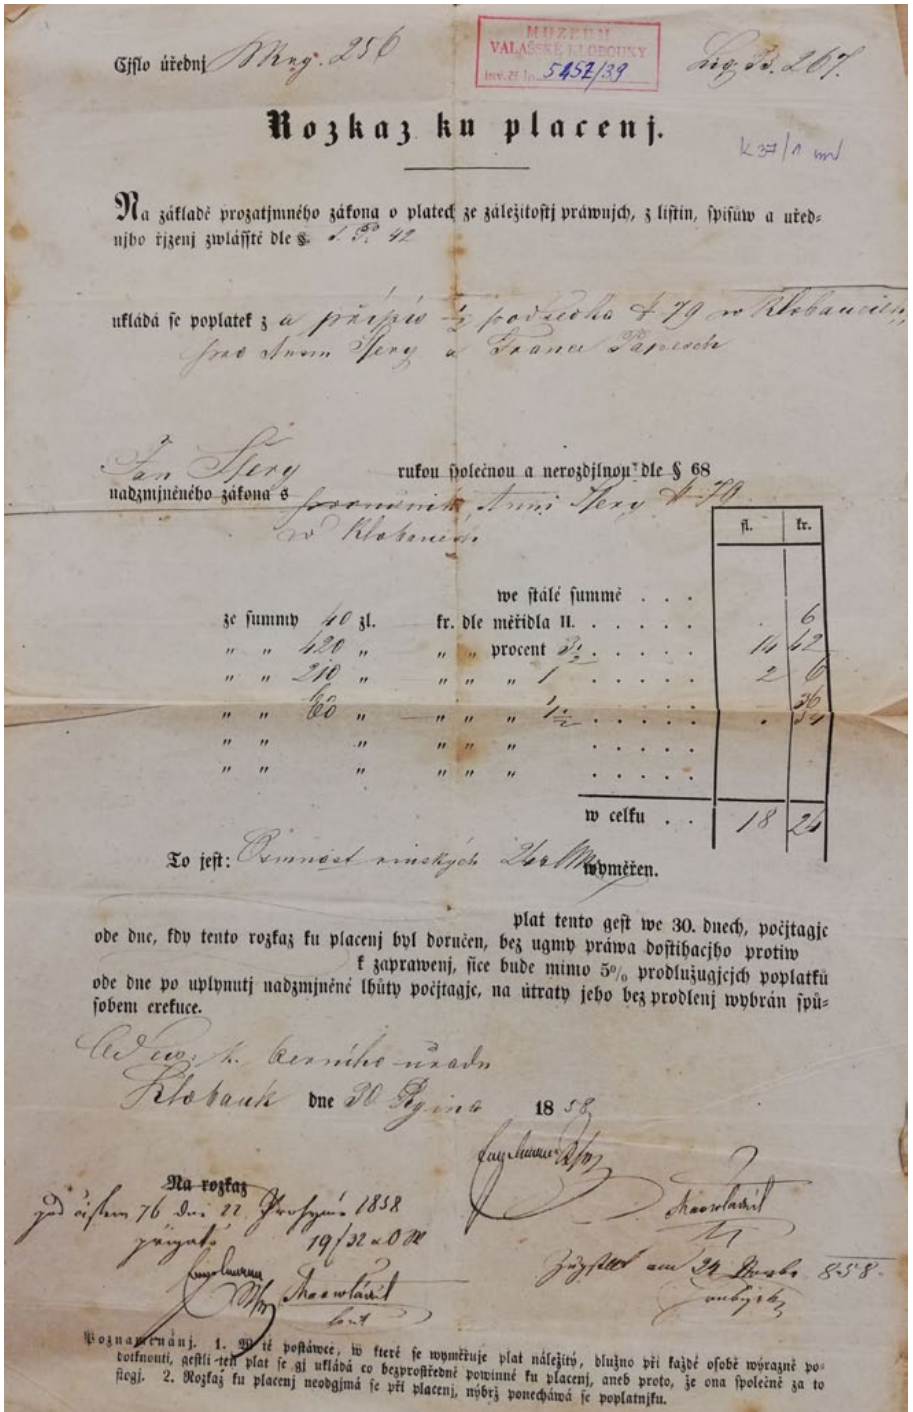 Cjslo úřednj Reg. 256
MUZEUM
VALAŠSKÉ KLOBOUKY
inv. čís. 5457/39
267.
Rozkaz ku placenj.
K 37/1
Na základě prozatjmného zákona o platech ze záležitostj práwnjch, z listin, spisůw a uřed-
njho řjzenj zwlásstě dle §. 42
ukládá se poplatek z a přípis ½ podsedka # 79 w Kloboucích
pro Annu a Franci
Jan rukou společnou a nerozdjlnou dle § 68
nadzmjněného zákona s Anni
w
fl. kr.
we stálé summě . . .
ze summy 40 zl. kr. dle měřidla II. . . . . . 6
„ „ 420 „ „ „ procent 3½ . . . . . 14 42
„ „ 210 „ „ „ „ 1 . . . . . 2 6
„ „ 60 „ „ „ „ 1½ . . . . .
„ „ „ „ „ „ . . . . .
„ „ „ „ „ „ . . . . .
w celku . . 18 24
To jest: Osmnást rinských 24 wyměřen.
plat tento gest we 30. dnech, počjtagjc
ode dne, kdy tento rozkaz ku placenj byl doručen, bez ugmy práwa dostihacjho protiw
k zaprawenj, sice bude mimo 5% prodlužugjcjch poplatků
ode dne po uplynutj nadzmjněné lhůty počjtagjc, na útraty jeho bez prodlenj wybrán spů-
sobem exekuce.
Od berního úradu
Klobauk dne 30 Rgina 1858
Engelmann
Na rozkaz
pod čislem 76 dni 22 Prosynce 1858
prigato 19/32
Engelmann
Zugstellt am 24 858.
Poznamenánj. 1. W té postáwce, w které se wyměřuje plat náležitý, dlužno při každé osobě wýrazně po-
dotknouti, gestli ten plat se gj ukládá co bezprostředně powinné ku placenj, aneb proto, že ona společně za to
stogj. 2. Rozkaz ku placenj neodgjmá se při placenj, nýbrž ponecháwá se poplatnjku.